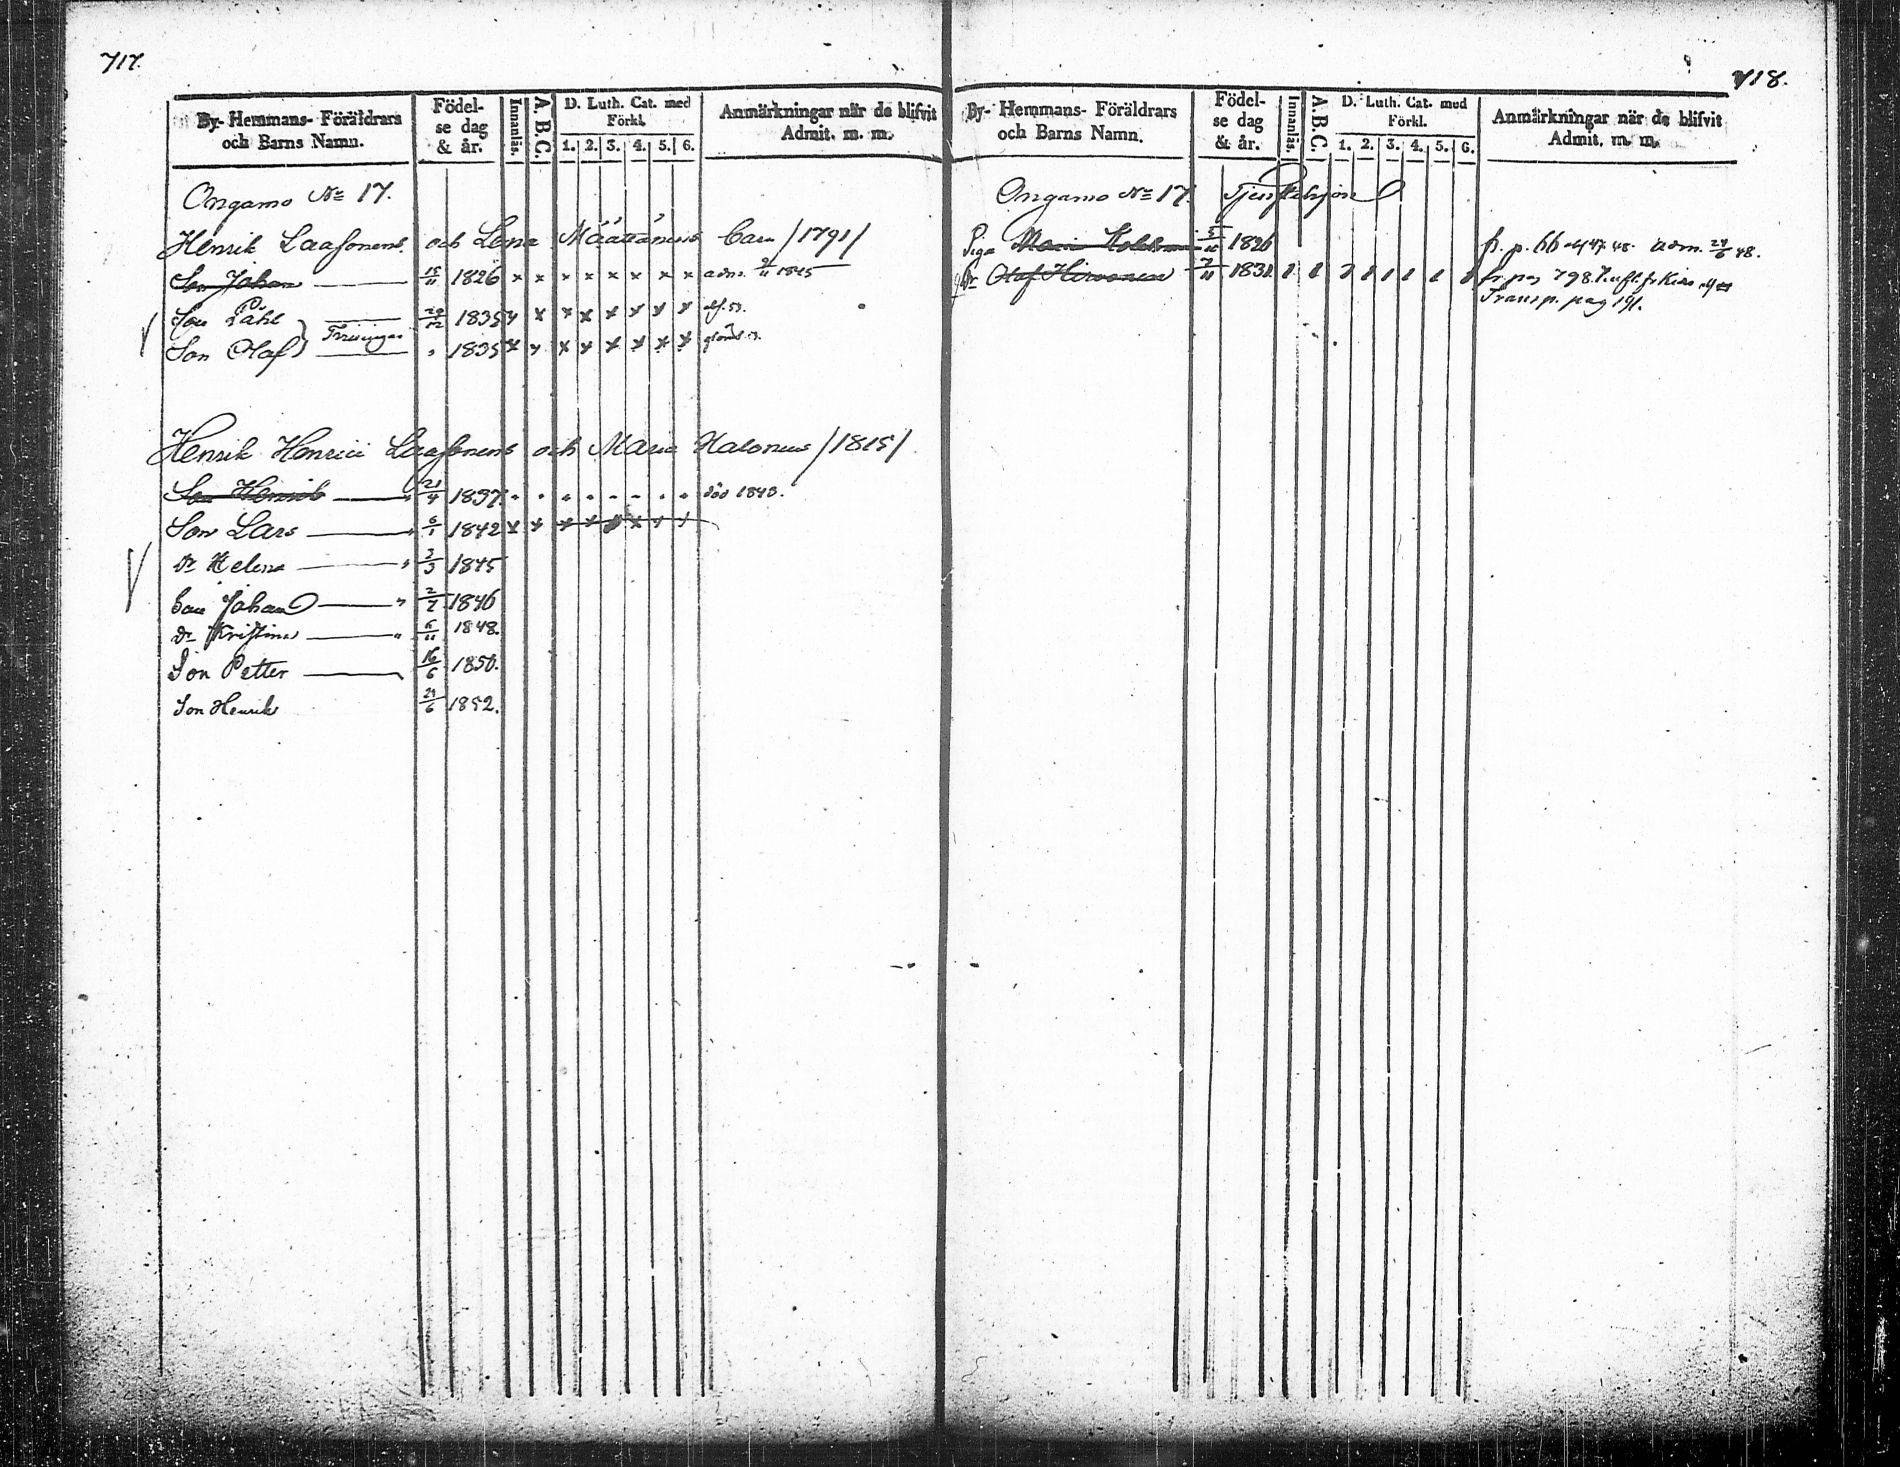 717.
By- Hemmans- Föräldrars och Barns Namn.
Födel- se dag & år.
Innanläs.
A. B. C.
D. Luth. Cat. med Förkl.
1. 2. 3. 4. 5. 6.
Anmärkningar när de blifvit Admit. m. m.
Ongamo No 17.
Henrik Laasonens och Lena Määttänens Barn /1791/
Son Johan 15/11 1826 x x x x x x x x adm. 1845
Son Påhl 1835 x x x x x x x
Tvillingar
Son Olof " 1835 x x x x x x x x
Henrik Henrici Laasonens och Maria Halonens /1815/
Son Henrik " 21/4 1837. död 1843.
Son Lars " 6/1 1842 x x x x x x
Dr Helena " 3/3 1845
Son Johan " 2/7 1846
Dr Kristina " 6/11 1848.
Son Petter 16/6 1850.
Son Henrik 24/6 1852.
718.
By- Hemmans- Föräldrars och Barns Namn.
Födel- se dag & år.
Innanläs.
A. B. C.
D. Luth. Cat. med Förkl.
1. 2. 3. 4. 5. 6.
Anmärkningar när de blifvit Admit. m. m.
Ongamo No 17. Tjenstehjon
Piga Maria 1826 fr. p. 66 adm. 24/6 48.
Olof Hirvonen 7/11 1831. fr. pag 798
Transp. pag 191.